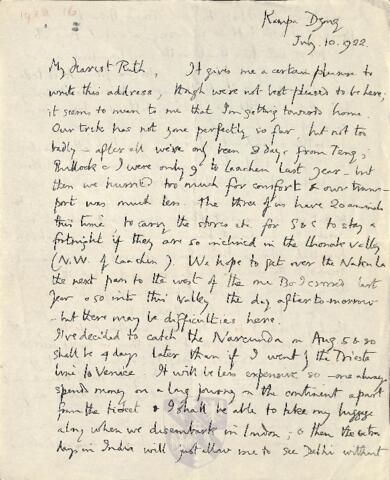 1922 16
Kampa Dzong
July. 10. 1922.
My dearest Ruth, It gives me a certain pleasure to
write this address, though we're not best pleased to be here.
it seems to mean to me that I'm getting towards home.
Our trek has not gone perfectly so far, but not too
badly – after all we've only been 8 days from Teng;
Bullock & I were only 9 to Laachen last year – but
then we hurried too much for comfort & our trans-
port was much less. The three of us have 20 animals
this time, to carry the stores etc for S & C to stay a
fortnight if they are so inclined in the Lhonak Valley
(N.W. of Laachen). We hope to get over the Naku la
the next pass to the west of the one B & I crossed last
year & so into this valley the day after to-morrow
– but there may be difficulties here.
I've decided to catch the Narcunda on Aug 5 & so
shall be 4 days later than if I went by the Trieste
line to Venice. It will be less expensive so – one always
spends money on a long journey on the continent apart
from the ticket & I shall be able to take my luggage
along when we disembark in London; & then the extra
days in India will just allow me to see Delhi without